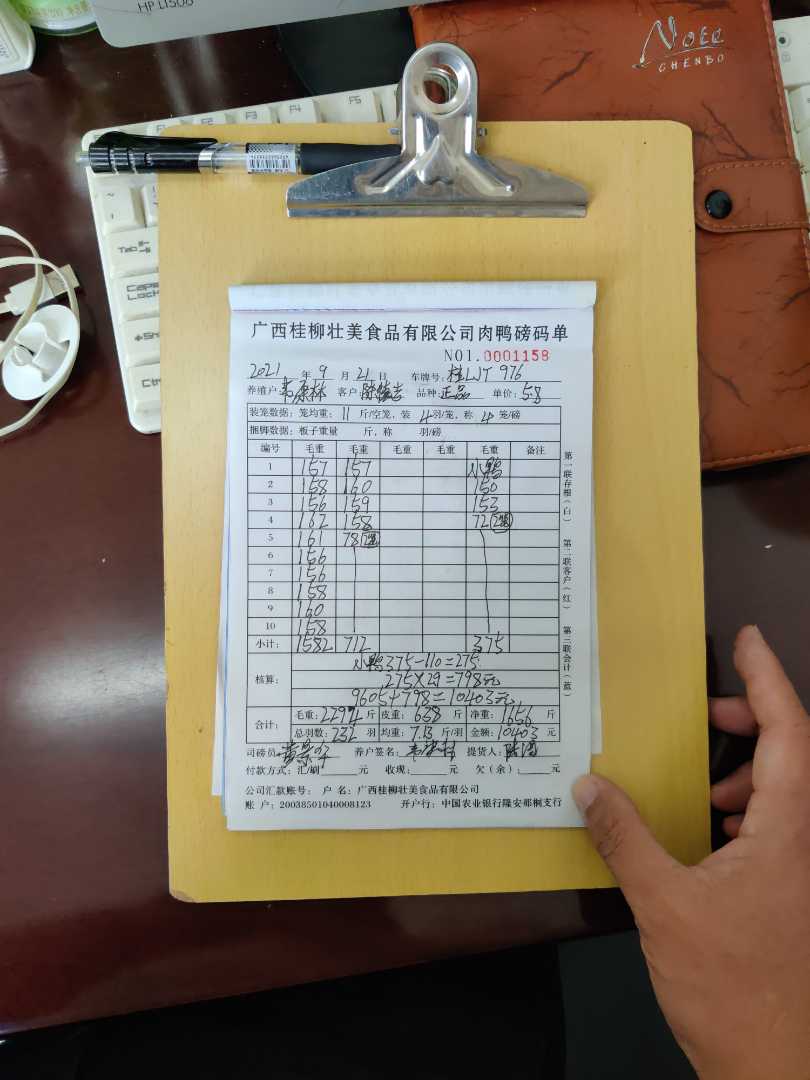 HP L1506
NOTE
CHENBO
F1 F2 F3 F4 F5
Tab
Caps Lock
广西桂柳壮美食品有限公司肉鸭磅码单
NO1.0001158
2021 年 9 月 21 日 车牌号: 桂LJY 976
养殖户: 客户: 品种: 正品 单价: 5.8
装笼数据: 笼均重: 11 斤/空笼, 装 4 羽/笼, 称 4 笼/磅
捆脚数据: 板子重量 斤, 称 羽/磅
编号 毛重 毛重 毛重 毛重 毛重 备注
1 157 157 小鸭
2 158 160 150
3 156 159 153
4 162 158 72
5 161 78
6 156
7 156
8 158
9 160
10 158
小计: 1582 712 375
核算: 小鸭375-110=275
275×29=798元
9605+798=10403元
合计: 毛重: 2294 斤 皮重: 638 斤 净重: 1656 斤
总羽数: 232 羽 均重: 7.13 斤/羽 金额: 10403 元
司磅员: 养户签名: 提货人:
付款方式: 汇/刷 元 收现: 元 欠(余): 元
公司汇款账号: 户 名: 广西桂柳壮美食品有限公司
账 户: 20038501040008123 开户行: 中国农业银行隆安那桐支行
第一联存根(白) 第二联客户(红) 第三联会计(蓝)